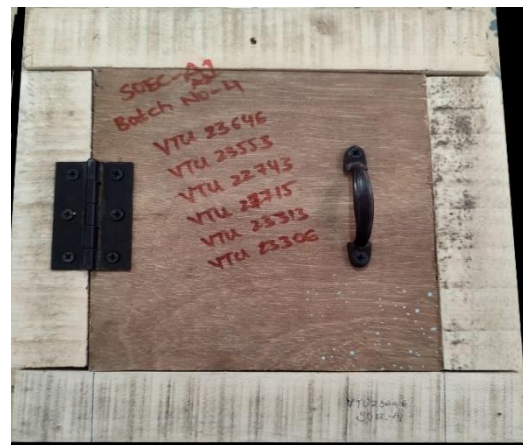 SOEC-A1
Batch NO-4
VTU 23646
VTU 23553
VTU 22743
VTU 22715
VTU 23313
VTU 23306
SOEC-A1